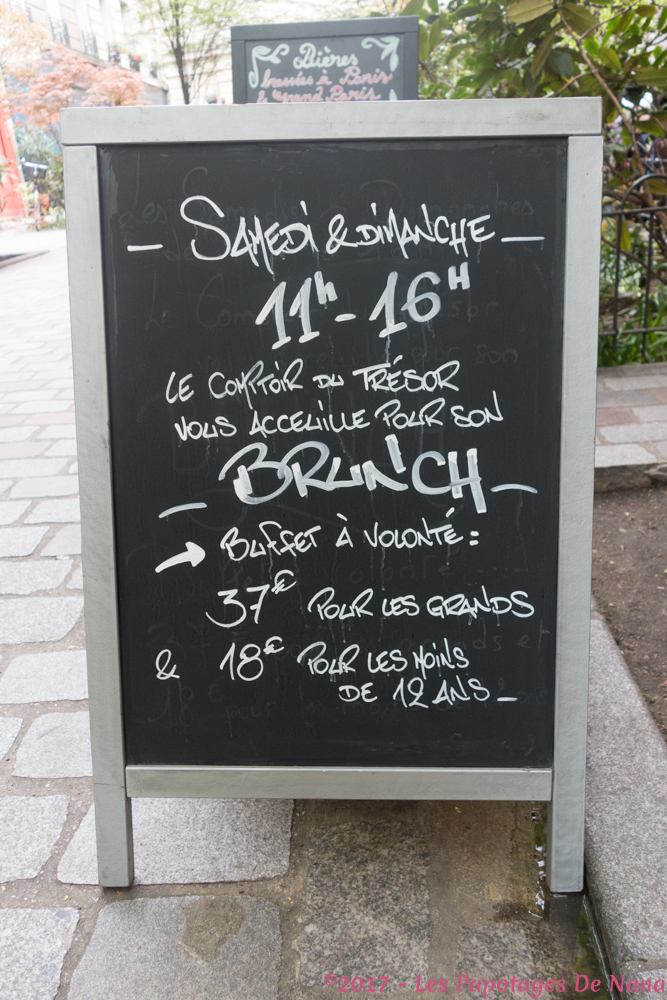 Bières
brassées à Paris
& Grand Paris
– SAMEDI & DIMANCHE –
11h - 16H
LE COMPTOIR DU TRÉSOR
VOUS ACCEUILLE POUR SON
– BRUNCH –
→ BUFFET À VOLONTÉ :
37€ POUR LES GRANDS
& 18€ POUR LES MOINS
DE 12 ANS –
©2017 - Les Papotages De Nana